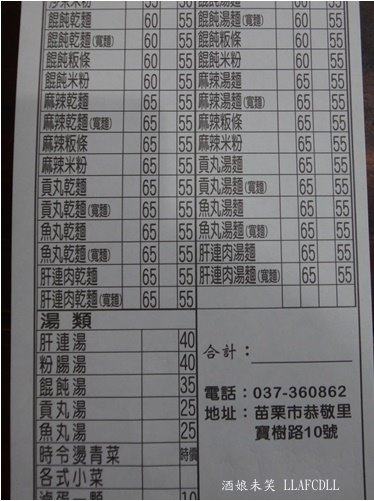 餛飩乾麵 60 55
餛飩乾麵(寬麵) 60 55
餛飩粄條 60 55
餛飩米粉 60 55
麻辣乾麵 65 55
麻辣乾麵(寬麵) 65 55
麻辣粄條 65 55
麻辣米粉 65 55
貢丸乾麵 65 55
貢丸乾麵(寬麵) 65 55
魚丸乾麵 65 55
魚丸乾麵(寬麵) 65 55
肝連肉乾麵 65 55
肝連肉乾麵(寬麵) 65 55
餛飩湯麵 60 55
餛飩湯麵(寬麵) 60 55
餛飩粄條 60 55
餛飩米粉 65 55
麻辣湯麵 65 55
麻辣湯麵(寬麵) 65 55
麻辣粄條 65 55
麻辣米粉 65 55
貢丸湯麵 65 55
貢丸湯麵(寬麵) 65 55
魚丸湯麵 65 55
魚丸湯麵(寬麵) 65 55
肝連肉湯麵 65 55
肝連肉湯麵(寬麵) 65 55
湯 類
肝連湯 40
粉腸湯 40
餛飩湯 35
貢丸湯 25
魚丸湯 25
時令燙青菜 時價
各式小菜
滷蛋一顆 10
合計：
電話：037-360862
地址：苗栗市恭敬里
寶樹路10號
酒娘未笑 LLAFCDLL